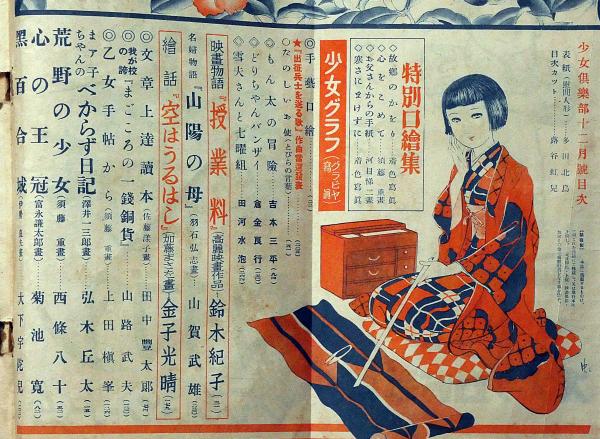 少女倶樂部十二月號目次
表紙(慰問人形)…多田北烏
目次カット…蕗谷虹兒
特別口繪集
◇故郷のかをり…着色寫眞
◇心をこめて…須藤重畫
◇お父さんからの手紙…河目悌二畫
◇寒さにまけずに…着色寫眞
少女グラフ(グラビヤ寫眞)
◎手藝口繪
★『出征兵士を送る歌』作曲當選發表
◇たのしいお使(とびらの言葉)
◇もん太の冒險…吉本三平
◇どりちゃんバンザイ…倉金良行
◇雪夫さんと七曜組…田河水泡
映畫物語『授業料』(高麗映畫作品)…鈴木紀子
名婦物語『山陽の母』(羽石弘志畫)…山賀武雄
繪話『空はうるはし』(加藤まさを畫)…金子光晴
◎文章上達讀本(佐藤漾子畫)…田中豐太郎
◎我が校の誇『まごころの一錢銅貨』…山路武夫
◎乙女手帖から(須藤重畫)…上田槇峯
まァ子ちゃんのべからず日記(澤井一三郎畫)…弘木丘太
荒野の少女(須藤重畫)…西條八十
心の王冠(富永謙太郎畫)…菊池寛
黑百合城…大下宇陀兒